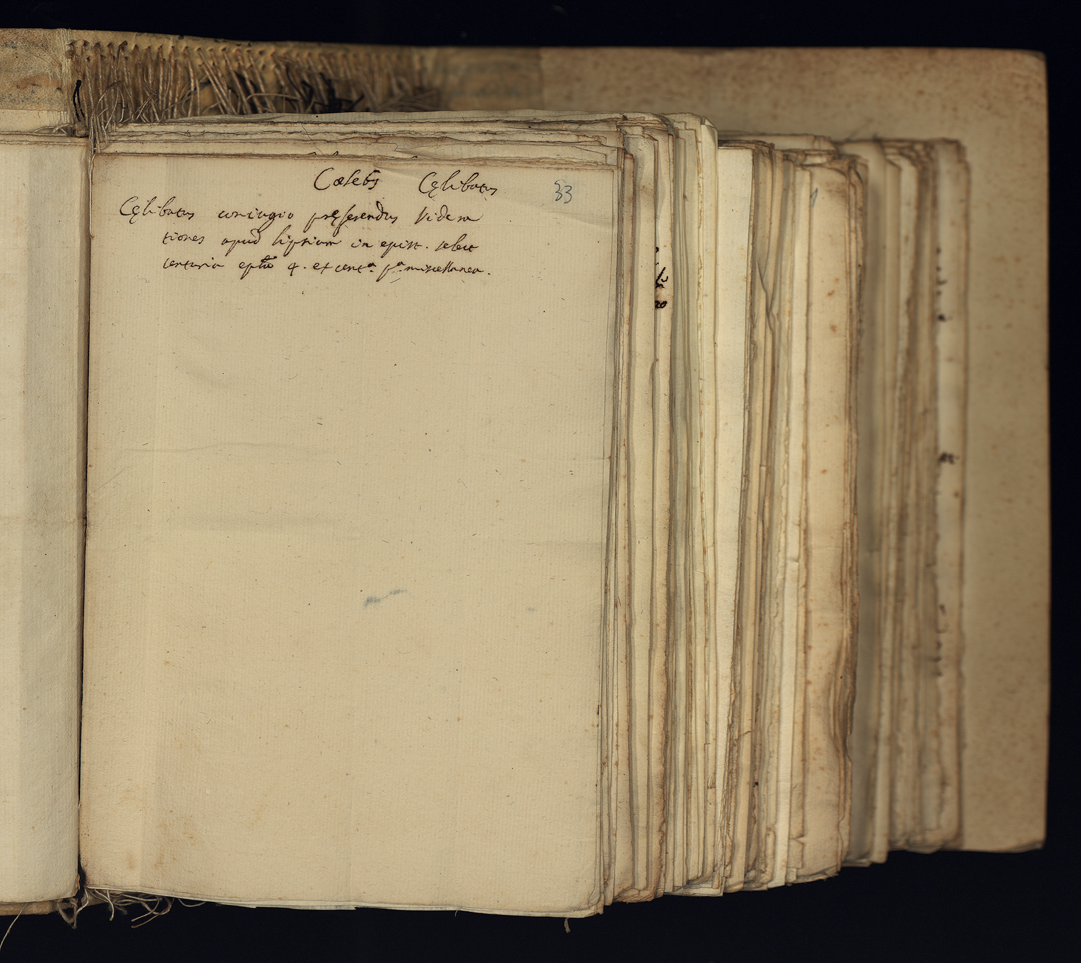 Cœlebs Cęlibatus 33
Cęlibatus coniugio pręferendus vide ra
tiones apud lipsium in epist. select
centuria 4. et centa. pa miscellanea.